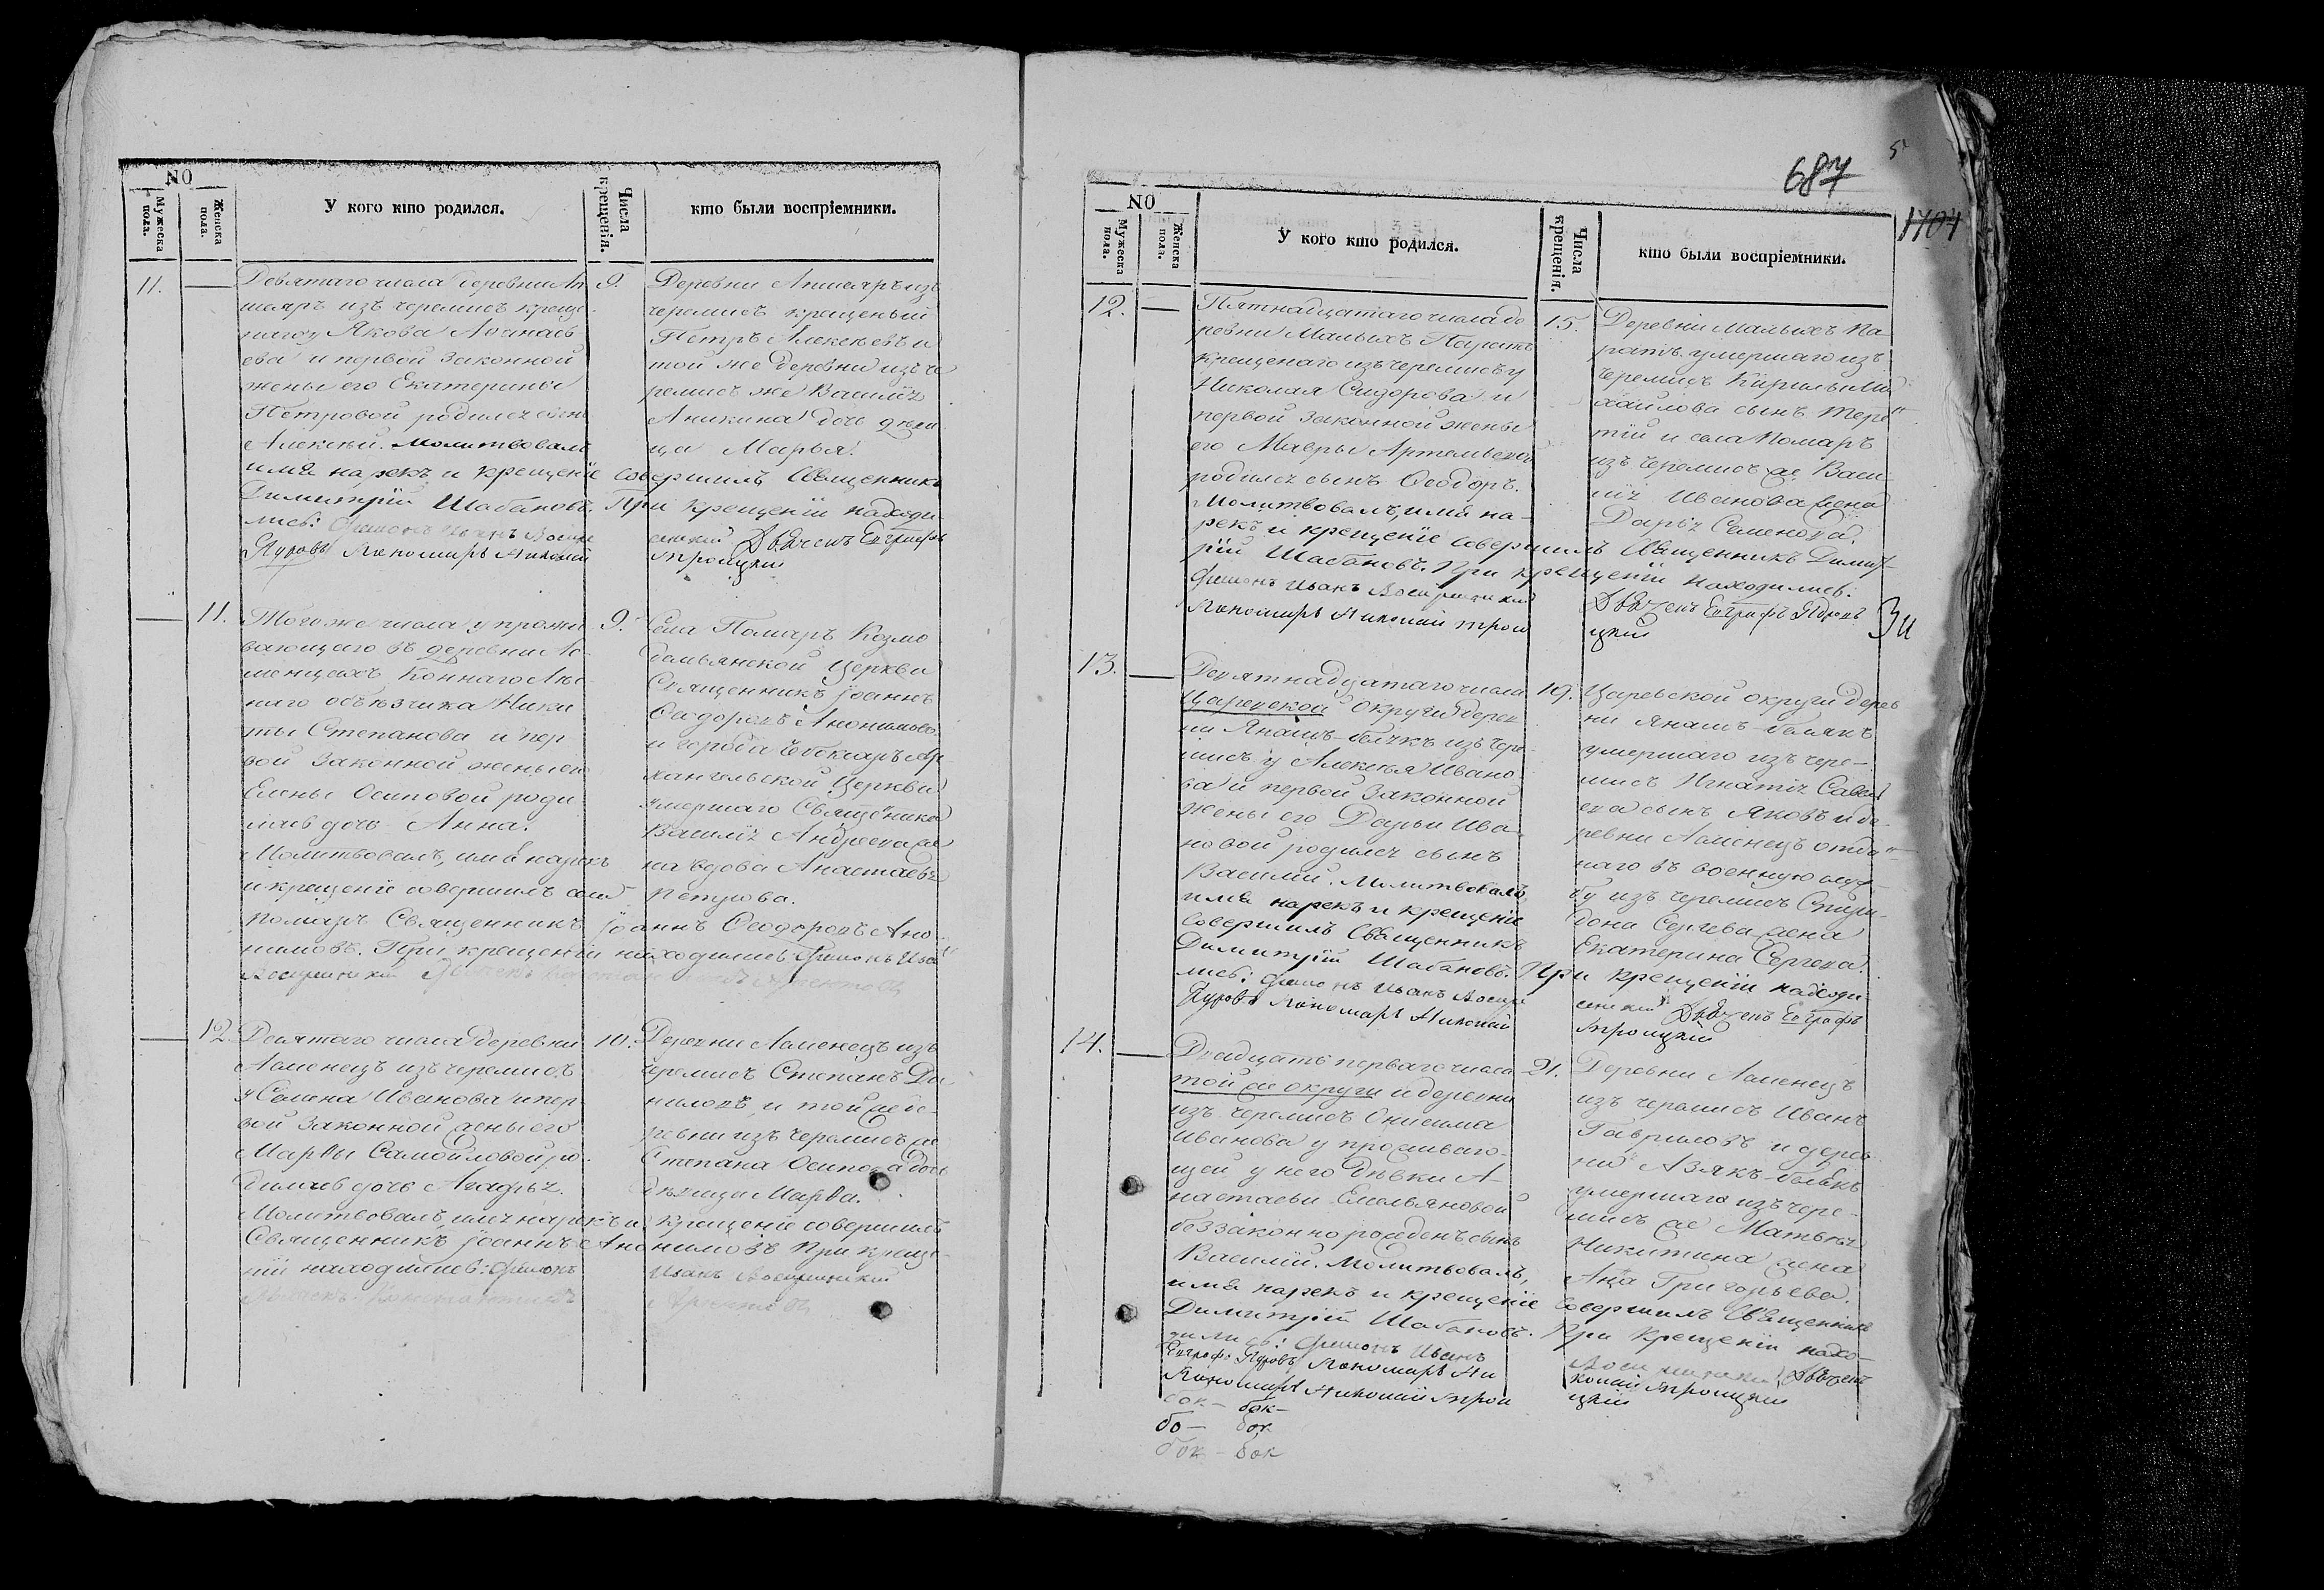 NО
Мужеска пола.
Женска пола.
У кого кто родился.
Числа крещенія.
кто были воспріемники.
11. —
Девятаго числа деревни Ап
шеяръ изъ черемисъ креще
наго у Якова Аѳанась
ева и первой законной
жены его Екатерины
Петровой родился сынъ
Алексѣй. Молитвовалъ
имя нарекъ и крещеніе совершилъ Священникъ
Димитрій Шабановъ. При крещеніи находи
лись: Дияконъ Иванъ Воскре сенскій Дьячекъ Евграфъ
Пономарь Николай Троицкій
9.
Деревни Апшеяръ изъ
черемисъ крещеный
Петръ Алексѣевъ и
той же деревни изъ че
ремисъ же Василія
Аникина дочь дѣви
ца Марья.
— 11.
Того же числа у прожи
вающаго въ деревни Ло
менцахъ Коннаго Лѣс
ного объѣзчика Ники
ты Степанова и пер
вой законной жены его
Елены Осиповой роди
лась дочь Анна.
Молитвовалъ, имя нарекъ
и крещеніе совершилъ села
Помаръ Священникъ Іоаннъ Ѳеодоровъ Ано
нимовъ. При крещеніи находились: Дияконъ Ива
9.
Села Помаръ Козмо
демьянской Церкви
Священникъ Іоаннъ
Ѳеодоровъ Анонимовъ
и города Чебоксаръ Ар
хангельской Церкви
умершаго Священника
Василія Андреева же
на вдова Анастасья
Петрова.
— 12.
Десятаго числа деревни
Ломенецъ изъ черемисъ
у Семена Иванова и пер
вой законной жены его
Марѳы Самойловой ро
дилась дочь Агафья.
Молитвовалъ, имя нарекъ и крещеніе совершилъ
Священникъ Іоаннъ Анонимовъ При креще
ніи находились: Дияконъ Иванъ Воскресенскій
10.
Деревни Ломенецъ изъ
черемисъ Степанъ Да
ниловъ, и той же де
ревни изъ черемисъ же
Степана Осипова дочь
дѣвица Марѳа.
687
1704
NО
Мужеска пола.
Женска пола.
У кого кто родился.
Числа крещенія.
кто были воспріемники.
12. —
Пятнадцатаго числа де
ревни Малыхъ Паратъ
крещенаго изъ черемисъ у
Николая Сидорова и
первой законной жены
его Мавры Артемьевой
родился сынъ Ѳеодоръ.
Молитвовалъ, имя на-
рекъ и крещеніе совершилъ Священникъ Димит-
рій Шабановъ. При крещеніи находились.
Дияконъ Иванъ Воскресенскій
Пономарь Николай Трои цкій
15.
Деревни Малыхъ Па-
ратъ умершаго изъ
черемисъ Кирилы Ми
хайлова сынъ Терен
тій и села Помаръ
изъ черемисъ же Васи-
лія Иванова жена
Дарья Семенова.
Дьячекъ Евграфъ
13. —
Девятнадцатаго числа
Царевской округи дерев
ни Янашъ-белякъ изъ чере-
мисъ у Алексѣя Ивано
ва и первой законной
жены его Дарьи Ива-
новой родился сынъ
Василій. Молитвовалъ,
имя нарекъ и крещеніе
совершилъ Священникъ
Димитрій Шабановъ. При крещеніи находи-
лись: Дияконъ Иванъ Воскре сенскій Дьячекъ Евграфъ
Пономарь Николай Троицкій
19.
Царевской округи дерев
ни Янашъ-белякъ
умершаго изъ чере-
мисъ Игнатія Савель
ева сынъ Яковъ и де-
ревни Ломенецъ отдан-
наго въ военную служ-
бу изъ черемисъ Спири-
дона Сергѣева жена
Екатерина Сергеева.
14. —
Двадцать перваго числа
той же округи и деревни
изъ черемисъ Онисима
Иванова у проживаю-
щей у него Дѣвки А-
настасьи Емельяновой
беззаконно рожденъ сынъ
Василій. Молитвовалъ,
имя нарекъ и крещеніе совершилъ Священникъ
Димитрій Шабановъ. При крещеніи нахо-
дились: Дияконъ Иванъ Дьячекъ
Пономарь Николай Трои цкій
21.
Деревни Ломенецъ
изъ черемисъ Иванъ
Гавриловъ и дерев
ни Азякъ-белякъ
умершаго изъ чере-
мисъ же Матвея
Никитина жена
Анна Григорьева.
бок- бок-
бо- бок
бок- бок